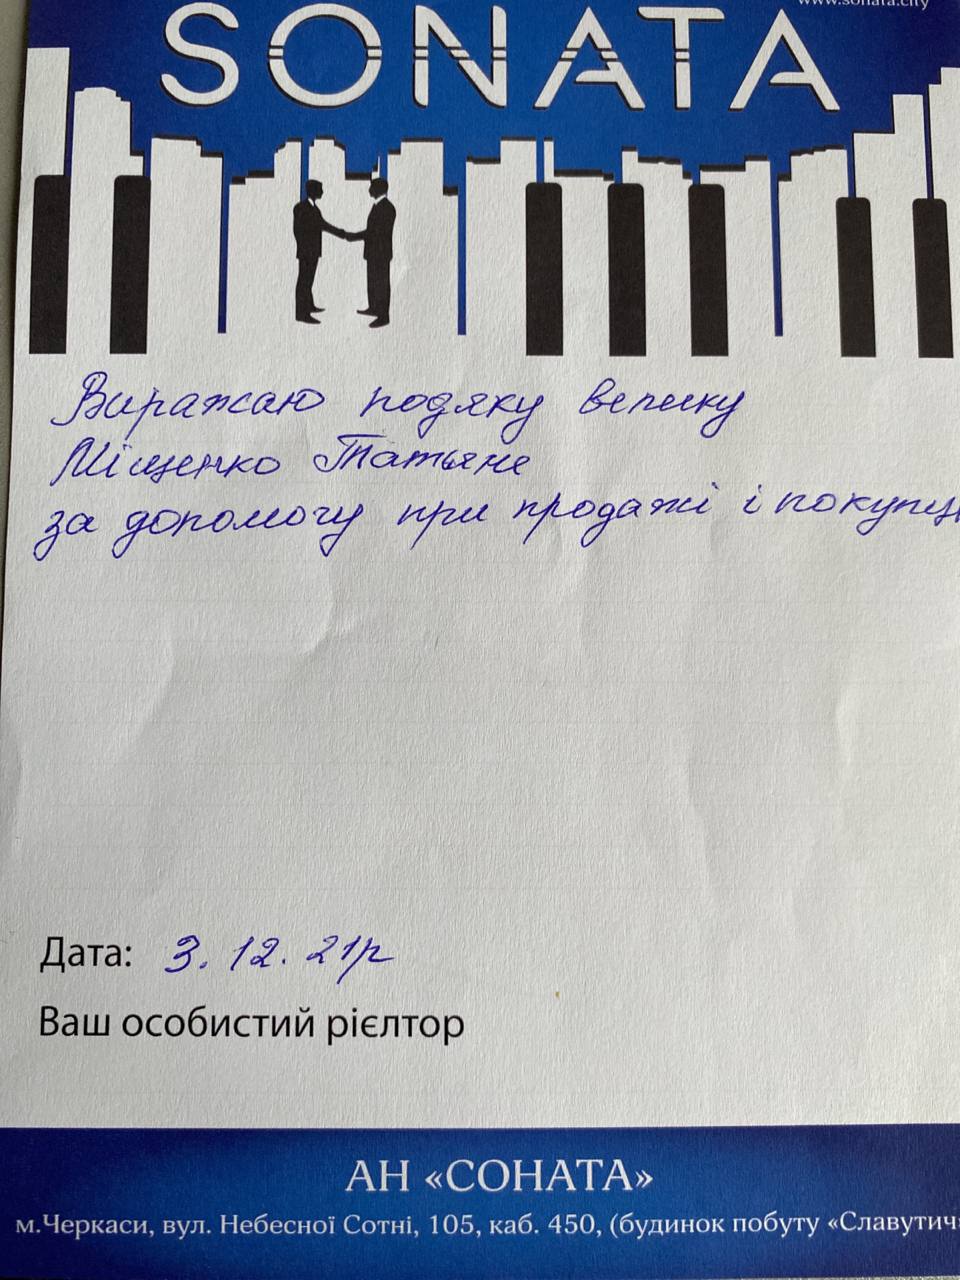 www.sonata.city
SONATA
Виражаю подяку велику
Міщенко Татьяне
за допомогу при продажі і покупці
Дата: 3. 12. 21р
Ваш особистий рієлтор
АН «СОНАТА»
м.Черкаси, вул. Небесної Сотні, 105, каб. 450, (будинок побуту «Славутич»